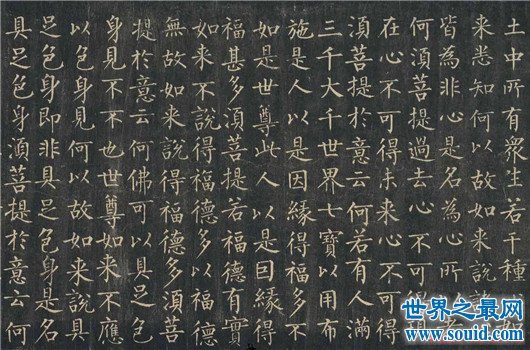 土中所有眾生若干種
來悉知何以故如來說諸
皆為非心是名為心所
何須菩提過去心不可得現
在心不可得未來心不可得
須菩提於意云何若有人滿
三千大千世界七寶以用布
施是人以是因緣得福多不
如是世尊此人以是因緣得
福甚多須菩提若福德有實
如來不說得福德多以福德
無故如來說得福德多須菩
提於意云何佛可以具足色
身見不不也世尊如來不應
以色身見何以故如來說具
足色身即非具足色身是名
具足色身須菩提於意云何
世界之最网
www.souid.com